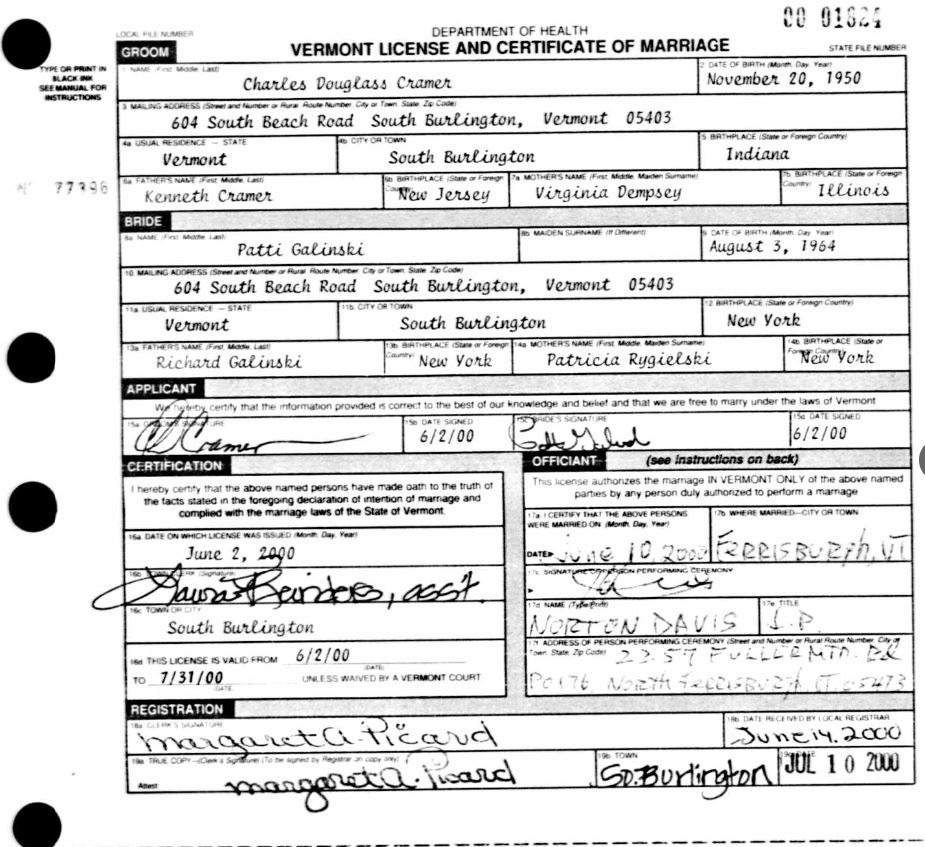 00 01824
LOCAL FILE NUMBER
DEPARTMENT OF HEALTH
VERMONT LICENSE AND CERTIFICATE OF MARRIAGE
STATE FILE NUMBER
TYPE OR PRINT IN
BLACK INK
SEE MANUAL FOR
INSTRUCTIONS
GROOM
1. NAME (First, Middle, Last)
Charles Douglass Cramer
2. DATE OF BIRTH (Month, Day, Year)
November 20, 1950
3. MAILING ADDRESS (Street and Number or Rural Route Number, City or Town, State, Zip Code)
604 South Beach Road South Burlington, Vermont 05403
4a. USUAL RESIDENCE — STATE
Vermont
4b. CITY OR TOWN
South Burlington
5. BIRTHPLACE (State or Foreign Country)
Indiana
77396
6a. FATHER'S NAME (First, Middle, Last)
Kenneth Cramer
6b. BIRTHPLACE (State or Foreign Country)
New Jersey
7a. MOTHER'S NAME (First, Middle, Maiden Surname)
Virginia Dempsey
7b. BIRTHPLACE (State or Foreign Country)
Illinois
BRIDE
8a. NAME (First, Middle, Last)
Patti Galinski
8b. MAIDEN SURNAME (If Different)
9. DATE OF BIRTH (Month, Day, Year)
August 3, 1964
10. MAILING ADDRESS (Street and Number or Rural Route Number, City or Town, State, Zip Code)
604 South Beach Road South Burlington, Vermont 05403
11a. USUAL RESIDENCE — STATE
Vermont
11b. CITY OR TOWN
South Burlington
12. BIRTHPLACE (State or Foreign Country)
New York
13a. FATHER'S NAME (First, Middle, Last)
Richard Galinski
13b. BIRTHPLACE (State or Foreign Country)
New York
14a. MOTHER'S NAME (First, Middle, Maiden Surname)
Patricia Rygielski
14b. BIRTHPLACE (State or Foreign Country)
New York
APPLICANT
We hereby certify that the information provided is correct to the best of our knowledge and belief and that we are free to marry under the laws of Vermont
15a. GROOM'S SIGNATURE
Cramer
15b. DATE SIGNED
6/2/00
15c. BRIDE'S SIGNATURE
15d. DATE SIGNED
6/2/00
CERTIFICATION
I hereby certify that the above named persons have made oath to the truth of
the facts stated in the foregoing declaration of intention of marriage and
complied with the marriage laws of the State of Vermont.
16a. DATE ON WHICH LICENSE WAS ISSUED (Month, Day, Year)
June 2, 2000
16b. TOWN CLERK (Signature)
Reinders, asst.
16c. TOWN OR CITY
South Burlington
16d. THIS LICENSE IS VALID FROM 6/2/00
(DATE)
TO 7/31/00 UNLESS WAIVED BY A VERMONT COURT
(DATE)
OFFICIANT (see instructions on back)
This license authorizes the marriage IN VERMONT ONLY of the above named
parties by any person duly authorized to perform a marriage
17a. I CERTIFY THAT THE ABOVE PERSONS
WERE MARRIED ON (Month, Day, Year)
DATE▶ June 10, 2000
17b. WHERE MARRIED—CITY OR TOWN
FERRISBURGH, VT
17c. SIGNATURE OF PERSON PERFORMING CEREMONY
17d. NAME (Type/Print)
NORTON DAVIS
17e. TITLE
J.P.
17f. ADDRESS OF PERSON PERFORMING CEREMONY (Street and Number or Rural Route Number, City or
Town, State, Zip Code) 2357 FULLER MTN. Rd
NORTH FERRISBURGH, VT. 05473
REGISTRATION
18a. CLERK'S SIGNATURE
Margaret A. Picard
18b. DATE RECEIVED BY LOCAL REGISTRAR
June 14, 2000
19a. TRUE COPY—(Clerk's Signature) (To be signed by Registrar on copy only)
Attest: Margaret A. Picard
19b. TOWN
So. Burlington
19c. DATE
JUL 10 2000